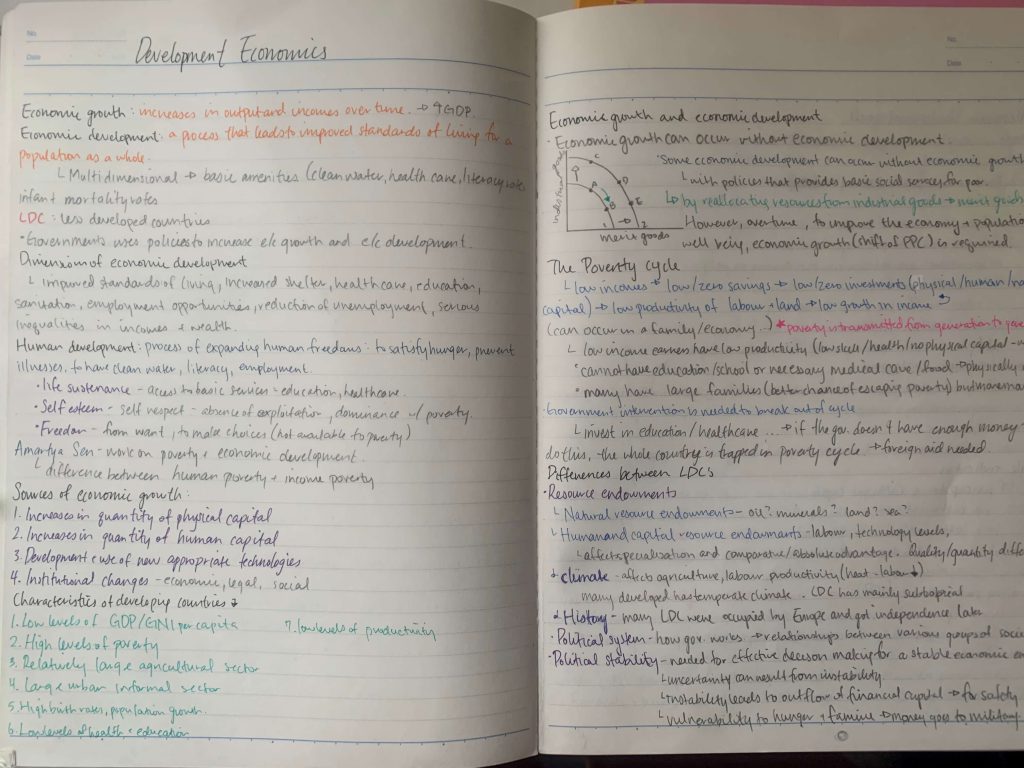 No.
Date
Development Economics
Economic growth: increases in output and incomes over time. → ↑GDP.
Economic development: a process that leads to improved standards of living for a
population as a whole.
└ Multidimensional → basic amenities (clean water, health care, literacy rate,
infant mortality rates
LDC: less developed countries
• Governments uses policies to increase e/c growth and e/c development.
Dimension of economic development
└ improved standards of living, increased shelter, healthcare, education,
sanitation, employment opportunities, reduction of unemployment, serious
inequalities in incomes + wealth.
Human development: process of expanding human freedoms: to satisfy hunger, prevent
illnesses, to have clean water, literacy, employment.
• life sustenance - access to basic services - education, healthcare.
• Self esteem - self respect - absence of exploitation, dominance w/ poverty.
• Freedom - from want, to make choices (not available to poverty)
Amartya Sen - work on poverty + economic development.
└ difference between human poverty + income poverty
Sources of economic growth:
1. Increases in quantity of physical capital
2. Increases in quantity of human capital
3. Development + use of new appropriate technologies
4. Institutional changes - economic, legal, social
Characteristics of developing countries ↓
1. Low levels of GDP/GNI per capita 7. low levels of productivity
2. High levels of poverty
3. Relatively large agricultural sector
4. Large urban informal sector
5. High birth rates, population growth.
6. Low levels of health + education
No.
Date
Economic growth and economic development
• Economic growth can occur without economic development.
• Some economic development can occur without economic growth
└ with policies that provides basic social services for poor.
↳ by reallocating resources from industrial goods → merit goods
However, overtime, to improve the economy + population
well being, economic growth (shift of PPC) is required.
C
A
D
B
E
1
2
merit goods
The Poverty cycle
└ low incomes → low/zero savings → low/zero investments (physical/human/na
capital) → low productivity of labour + land → low growth in income
(can occur in a family/economy..) * poverty is transmitted from generation to gene
└ low income earners have low productivity (low skill/health/no physical capital
• cannot have education/school or necessary medical care/food → physically
• many have large families (better chance of escaping poverty) but
• Government intervention is needed to break out of cycle
└ invest in education/healthcare ... → if the gov. doesn't have enough money
do this, the whole country is trapped in poverty cycle → foreign aid needed.
Differences between LDCs
• Resource endowments
└ Natural resource endowments - oil? minerals? land? sea?
└ Human and capital resource endowments - labour, technology levels,
└ affects specialisation and comparative/absolute advantage. Quality/quantity diffe
climate - affects agriculture, labour productivity (heat - labour↓)
many developed has temperate climate. LDC has mainly subtropical
History - many LDC were occupied by Europe and got independence later
• Political system - how gov. works → relationships between various groups of socie
• Political stability - needed for effective decision making for a stable economic en
└ uncertainty can result from instability
└ instability leads to outflow of financial capital → for safety
└ vulnerability to hunger + famine → money goes to military